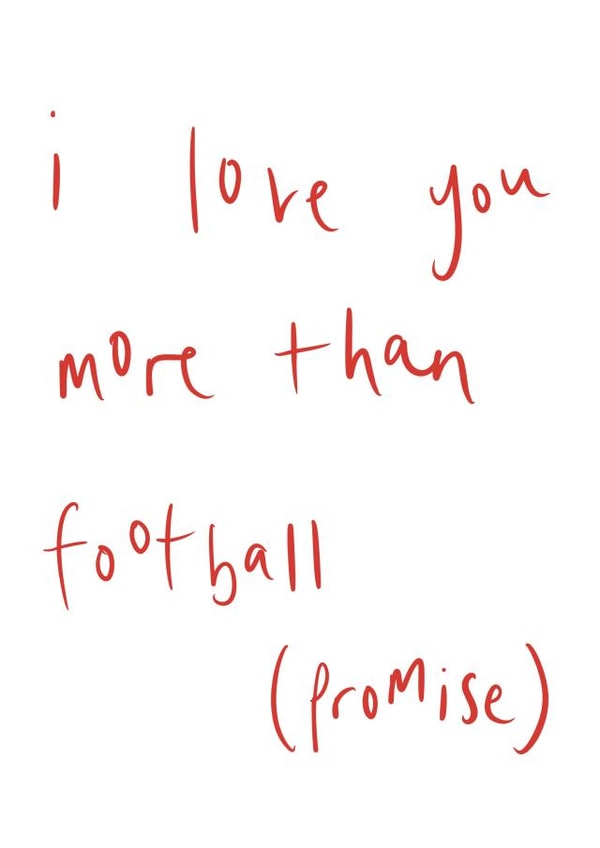 i love you
more than
football
(promise)